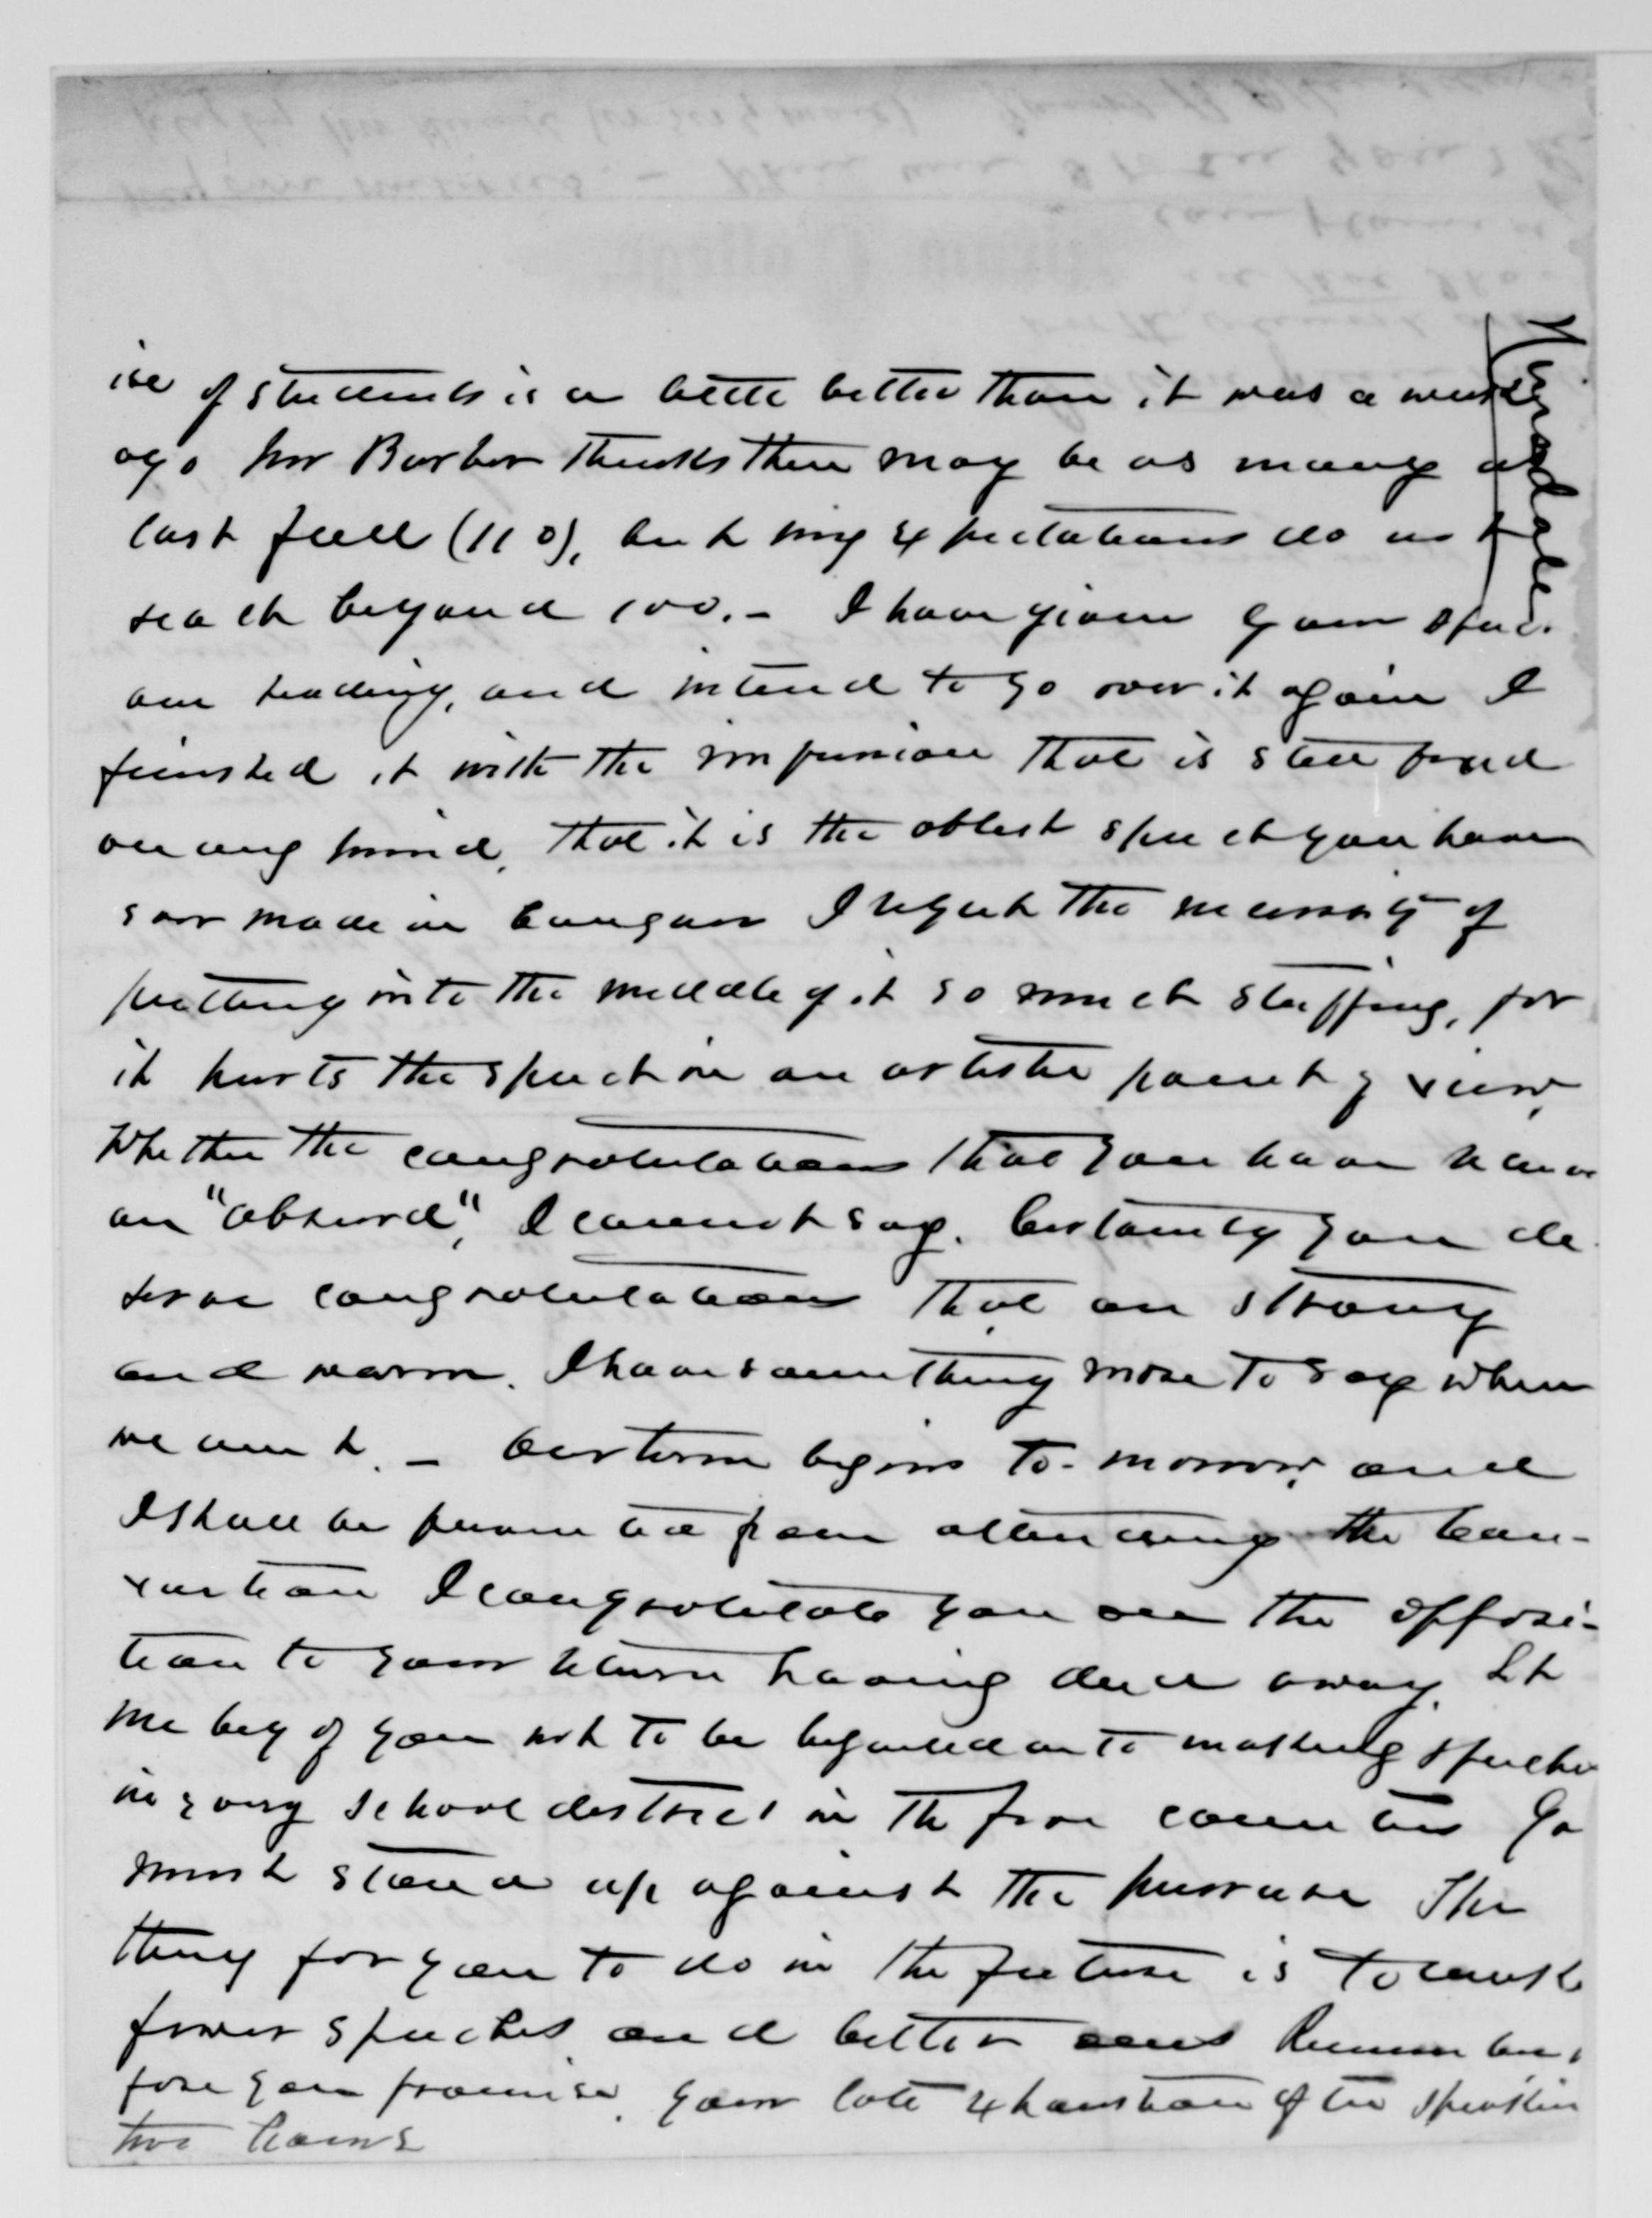 ise of students is a little better than it was a week
ago Mr Barber thinks there may be as many as
last fall (110), but my expectations do not
reach beyond 100. - I have given your speech
one reading, and intend to go over it again I
finished it with the impression that is still fixed
on my mind, that it is the ablest speech you have
ever made in Congress I regret the necessity of
putting into the middle of it so much stuffing, for
it hurts the speech in an artistic point of view,
Whether the congratulations that you have
are "absurd", I cannot say. Certainly you de
serve congratulations that are strong
and warm. I have something more to say when
we meet. - Our term begins to-morrow, and
I shall be prevented from attending the Con-
vention I congratulate you on the opposi-
tion to your return having died away. Let
me beg of you not to be beguiled into making speeches
in every school district in the five counties Yo
must stand up against the pressure The
thing for you to do in the future is to make
fewer speeches and better ones Remember, be
fore you promise, your late exhaustion after speaking
two hours
Hinsdale